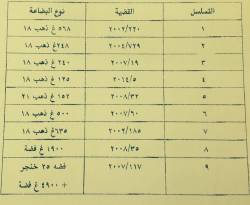 التسلسل القضية نوع البضاعة
١ ٢٠٠٢/٢٢٠ ٥٦٨ غ ذهب ١٨
٢ ٢٠٠٤/٧٢٩ ٢٤٨ غ ذهب ١٨
٣ ٢٠٠٧/١٩ ٢٤٠ غ ذهب ١٨
٤ ٢٠١٤/٥ ١٢٥ غ ذهب ١٨
٥ ٢٠٠٨/٣٢ ١٥٢ غ ذهب ٢١
٦ ٢٠٠٧/٦٠ ٥٠٠ غ ذهب ١٨
٧ ٢٠٠٢/١٨٥ ٦٣٥ غ ذهب ١٨
٨ ٢٠٠٨/٣٥ ١٩٠٠ غ فضة
٩ ٢٠٠٧/١١٧ فضه ٢٥ خنجر
+ ٤٩٠٠ غ فضة